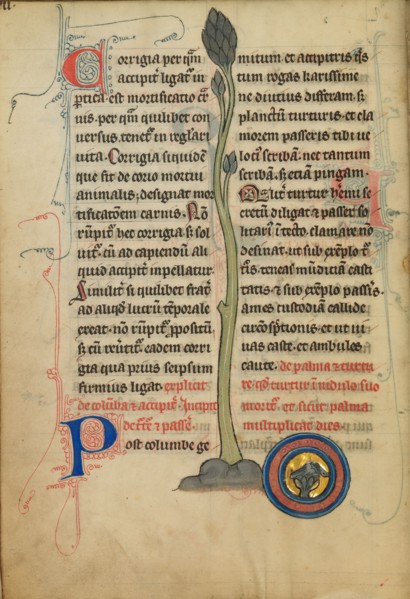 Corrigia per quā
accipit̄ ligat̄ in
ꝑtica est mortificatio car
nis. per quā quilibet con
uersus tenet̄ in reglari
uita. Corrigia siquidē
que fit de corio mortui
animalis; designat mor
tificatōem carnis. Nō
rūpit̄ hec corrigia. sꝫ sol
uit̄. cū ad capiendū ali
quid accipit̄ impellatur.
Similit̄ si quilibet frat̄
ad aliqd̄ lucrū tēporale
exeat. nō rūpit̄ ꝓpositū
sꝫ cū reūtit̄. eadem corri
gia qua prius seipsum
firmius ligat. explicit
de colūba ⁊ accipit̄. Incipit
⁊ pass̄.
Post columbe ge
mitum. et accipitris
tum rogas karissime
ne diutius differam. sꝫ
planctū turturis. et cla
morem passeris tibi ue
loci scribā. nec tantum
scribā. sꝫ etiā pingam.
turtur
cretū diligat ⁊ passer so
litari in tecto. clamare no
desinat. ut sub exēplo
teneas mūdiciā casti
tatis ⁊ sub exēplo pass̄is.
ames custodiam callide
circōspt̄ionis. et ut ui
uas caste. et ambules
caute. de palma ⁊ turtu
re. qd̄ turtur ī nidulo suo
mort̄. et sicut palma
multiplicat̄ dies.